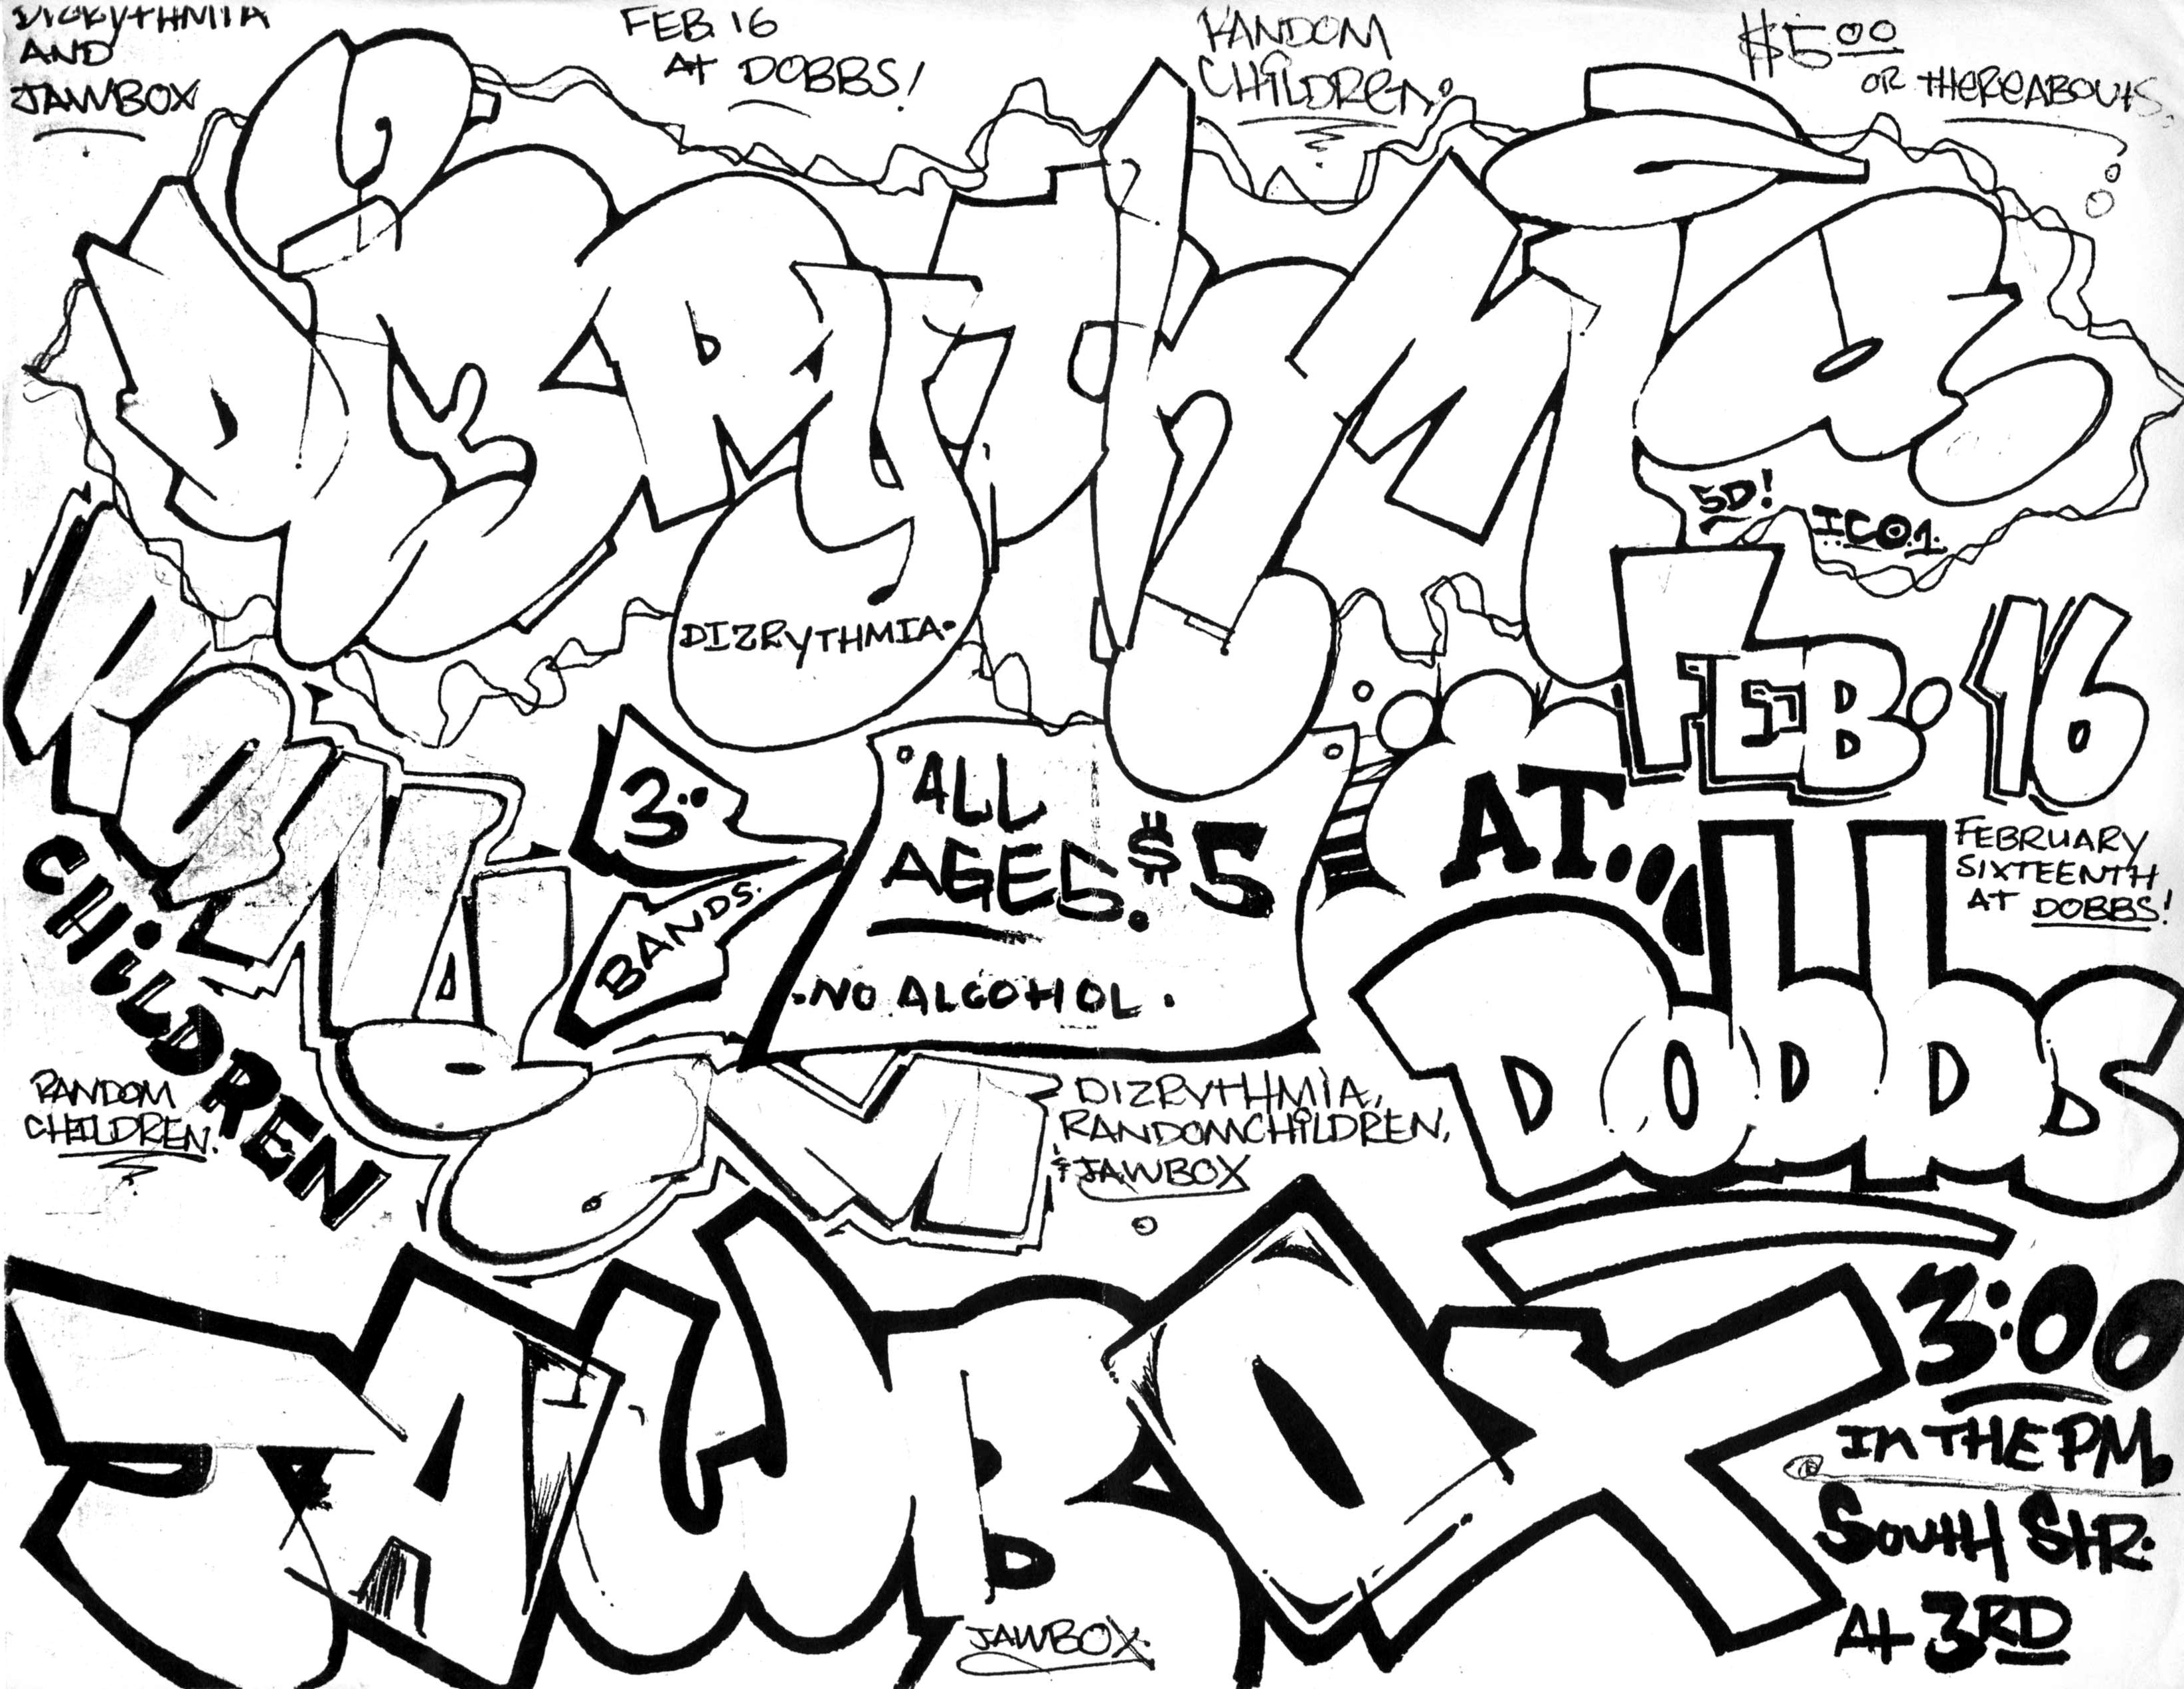 DIZRYTHMIA
AND
JAWBOX
FEB. 16
At DOBBS!
RANDOM
CHiLDREN.
$5.00
OR tHEREABOUtS.
DIZRYtHMIA
5D!
ICO.1.
DIZRYTHMIA.
RANDOM
CHiLDREN
RANDOM
CHILDREN.
3
BANDS.
ALL
AGES. $5
.NO ALCOHOL.
FEB. 16
AT...
DObbS
FEBRUARY
SIXTEENTH
AT DOBBS!
DIZRYtHMiA,
RANDOMCHiLDREN,
& JAWBOX
JAWBOX
JAWBOX.
3:00
In THE PM.
@
SoutH StR.
At 3RD